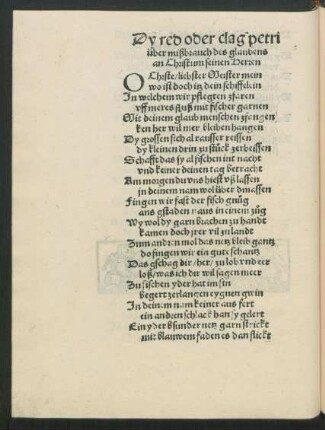 Dy red oder clag petri
über mißbrauch des glaubens
an Christum seinen Herren
O Christe/ liebster Meister mein
wo ist doch ietz dein schiffelein
In welchem wir pflegten zfaren
vff meres fluß mit fischer garnen
Mit deinem glaub menschen zfangen
ken her wil mer bleiben hangen
Dy grossen sich al rausser reissen
dy kleinen drin zu stück zerbeissen
Schafft das sy al fischen int nacht
vnd keiner deinen tag betracht
Am morgen du vns hiest vß lassen
in deinem nam wol über dmassen
Fingen wir fast der fisch gnůg
ans gstaden naus in einem zůg
Wy wol dy garn brachen zu handt
kamen doch irer vil zu landt
Zum andrn mol das netz bleib gantz
do fingen wir ein gute schantz
Das gschag dir/ her/ zu lob vnd eer
loß/ was ich dir wil sagen meer
Zu fischen yder hat im sin
begert zerlangen eygnen gwin
In deinem nam keiner aus fert
ein andren schlack han sy gelert
Ein yder bsunder netz garn strickt
mit blauwem faden es dan flickt